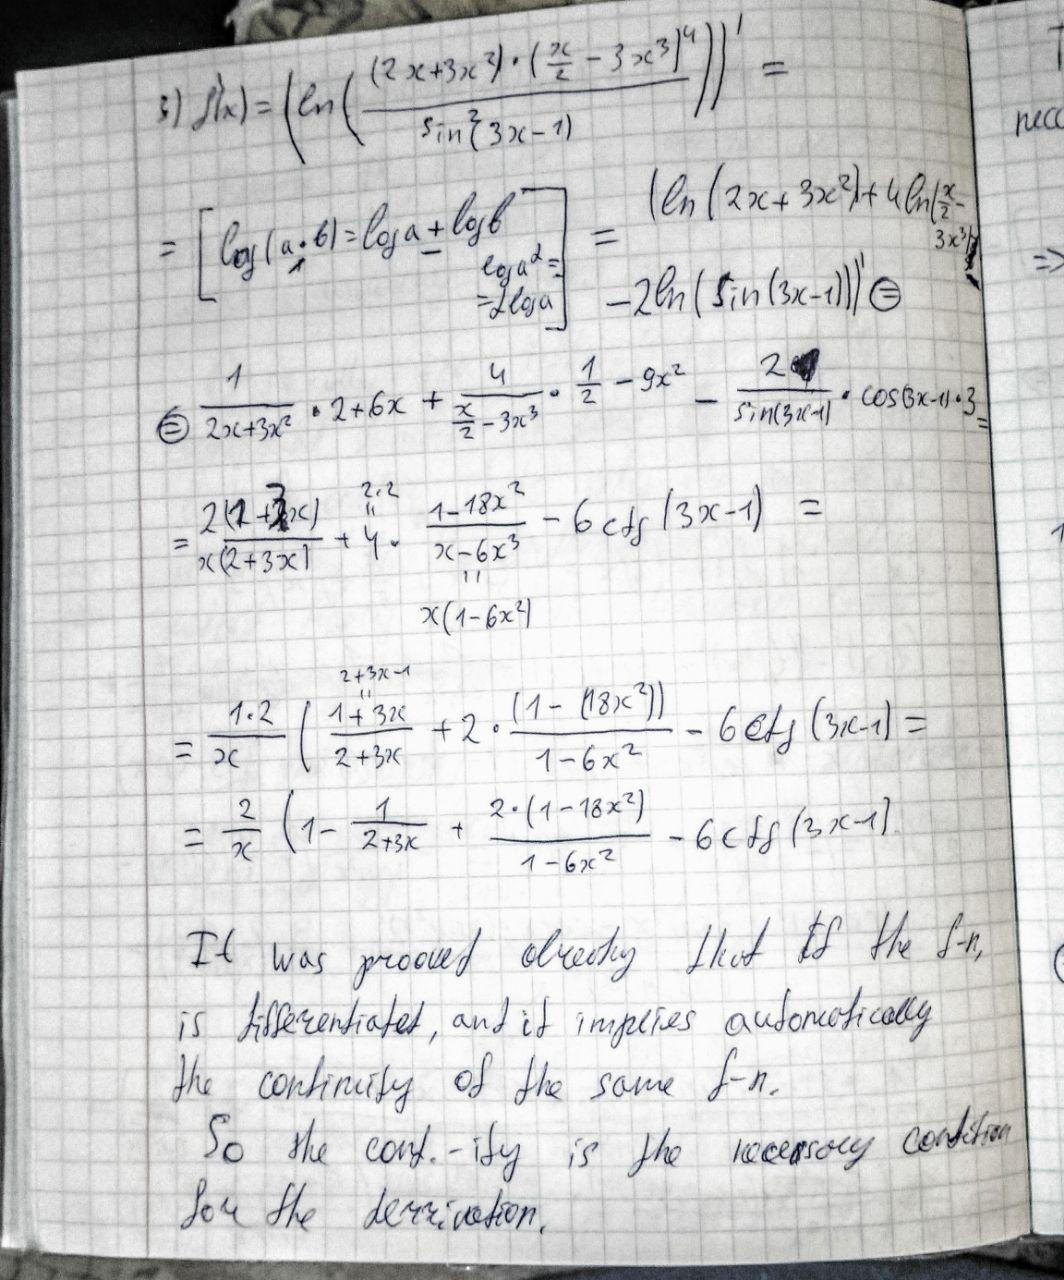 3) f'(x) = (ln((2x+3x²)·(x/2 − 3x³)⁴ / sin²(3x−1)))' =
= [log(a·b) = log a + log b
log a^α =
= α log a] = (ln(2x+3x²) + 4ln(x/2 − 3x³)
− 2ln(sin(3x−1)))' ⊜
⊜ 1/(2x+3x²) · 2+6x + 4/(x/2 − 3x³) · 1/2 − 9x² − 2/sin(3x−1) · cos(3x−1)·3 =
2·2
= 2(1+3x)/x(2+3x) + 4 · (1−18x²)/(x−6x³) − 6ctg(3x−1) =
x(1−6x²)
2+3x−1
= 1·2/x ((1+3x)/(2+3x) + 2·(1−(18x²))/(1−6x²) − 6ctg(3x−1) =
= 2/x (1 − 1/(2+3x) + 2·(1−18x²)/(1−6x²) − 6ctg(3x−1).
It was prooved already that if the f-n,
is differentiated, and it implies automatically
the continuity of the same f-n.
So the cont.-ity is the necessary condition
for the derrivation.